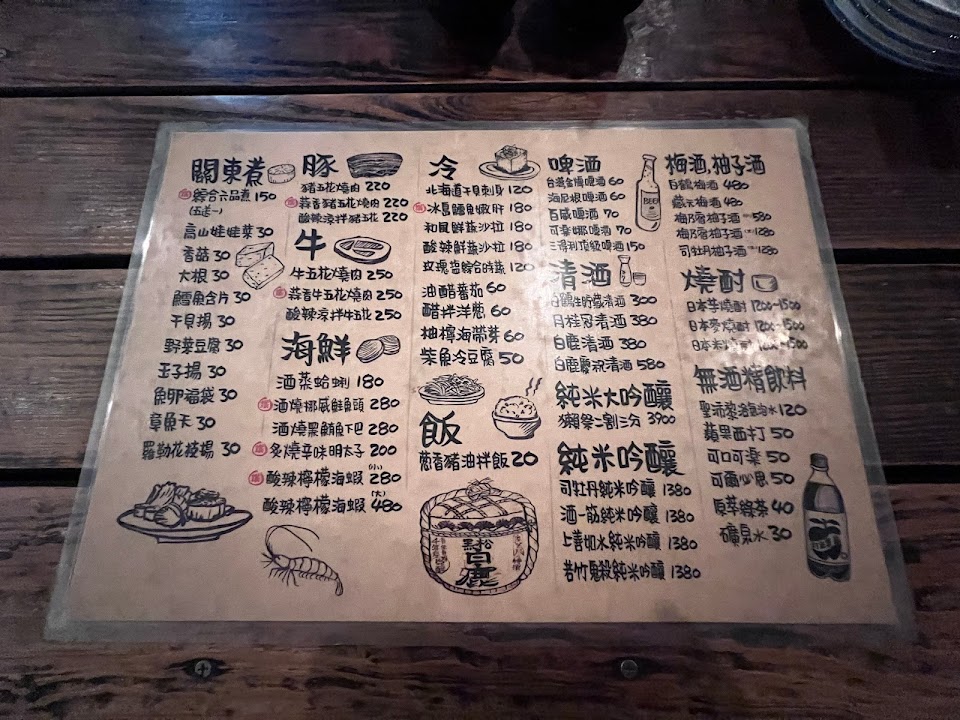 關東煮
綜合六品煮 150
(五送一)
高山娃娃菜 30
香菇 30
大根 30
鱈魚合片 30
干貝揚 30
野菜豆腐 30
玉子揚 30
魚卵福袋 30
章魚天 30
羅勒花枝揚 30
豚
豬五花燒肉 220
蒜香豬五花燒肉 220
酸辣涼拌豬五花 220
牛
牛五花燒肉 250
蒜香牛五花燒肉 250
酸辣涼拌牛五花 250
海鮮
酒蒸蛤蜊 180
酒燒挪威鮭魚頭 280
酒燒黑鮪魚下巴 280
炙燒辛味明太子 200
酸辣檸檬海蝦(小) 280
酸辣檸檬海蝦(大) 480
冷
北海道干貝刺身 120
冰島鱈魚嫩肝 180
和風鮮蔬沙拉 180
酸辣鮮蔬沙拉 180
玫瑰岩鹽綜合時蔬 120
油醋番茄 60
醋拌洋蔥 60
柚檸海帶芽 60
柴魚冷豆腐 50
飯
蔥香豬油拌飯 20
黑松
白鹿
啤酒
台灣金牌啤酒 60
海尼根啤酒 60
百威啤酒 70
可樂娜啤酒 70
三得利頂級啤酒 150
BEER
清酒
白鶴生貯藏清酒 300
月桂冠清酒 380
白鹿清酒 380
白鹿慶祝清酒 580
純米大吟釀
獺祭二割三分 3900
純米吟釀
司牡丹純米吟釀 1380
酒一筋純米吟釀 1380
上善如水純米吟釀 1380
若竹鬼殺純米吟釀 1380
梅酒,柚子酒
白鶴梅酒 480
藏元梅酒 480
梅乃宿柚子酒 580
梅乃宿柚子酒 1280
司牡丹柚子酒 1280
燒酎
日本芋燒酎 1200~1500
日本麥燒酎 1200~1500
日本米燒酎 1500
無酒精飲料
聖沛黎洛氣泡水 120
蘋果西打 50
可口可樂 50
可爾必思 50
原萃綠茶 40
礦泉水 30